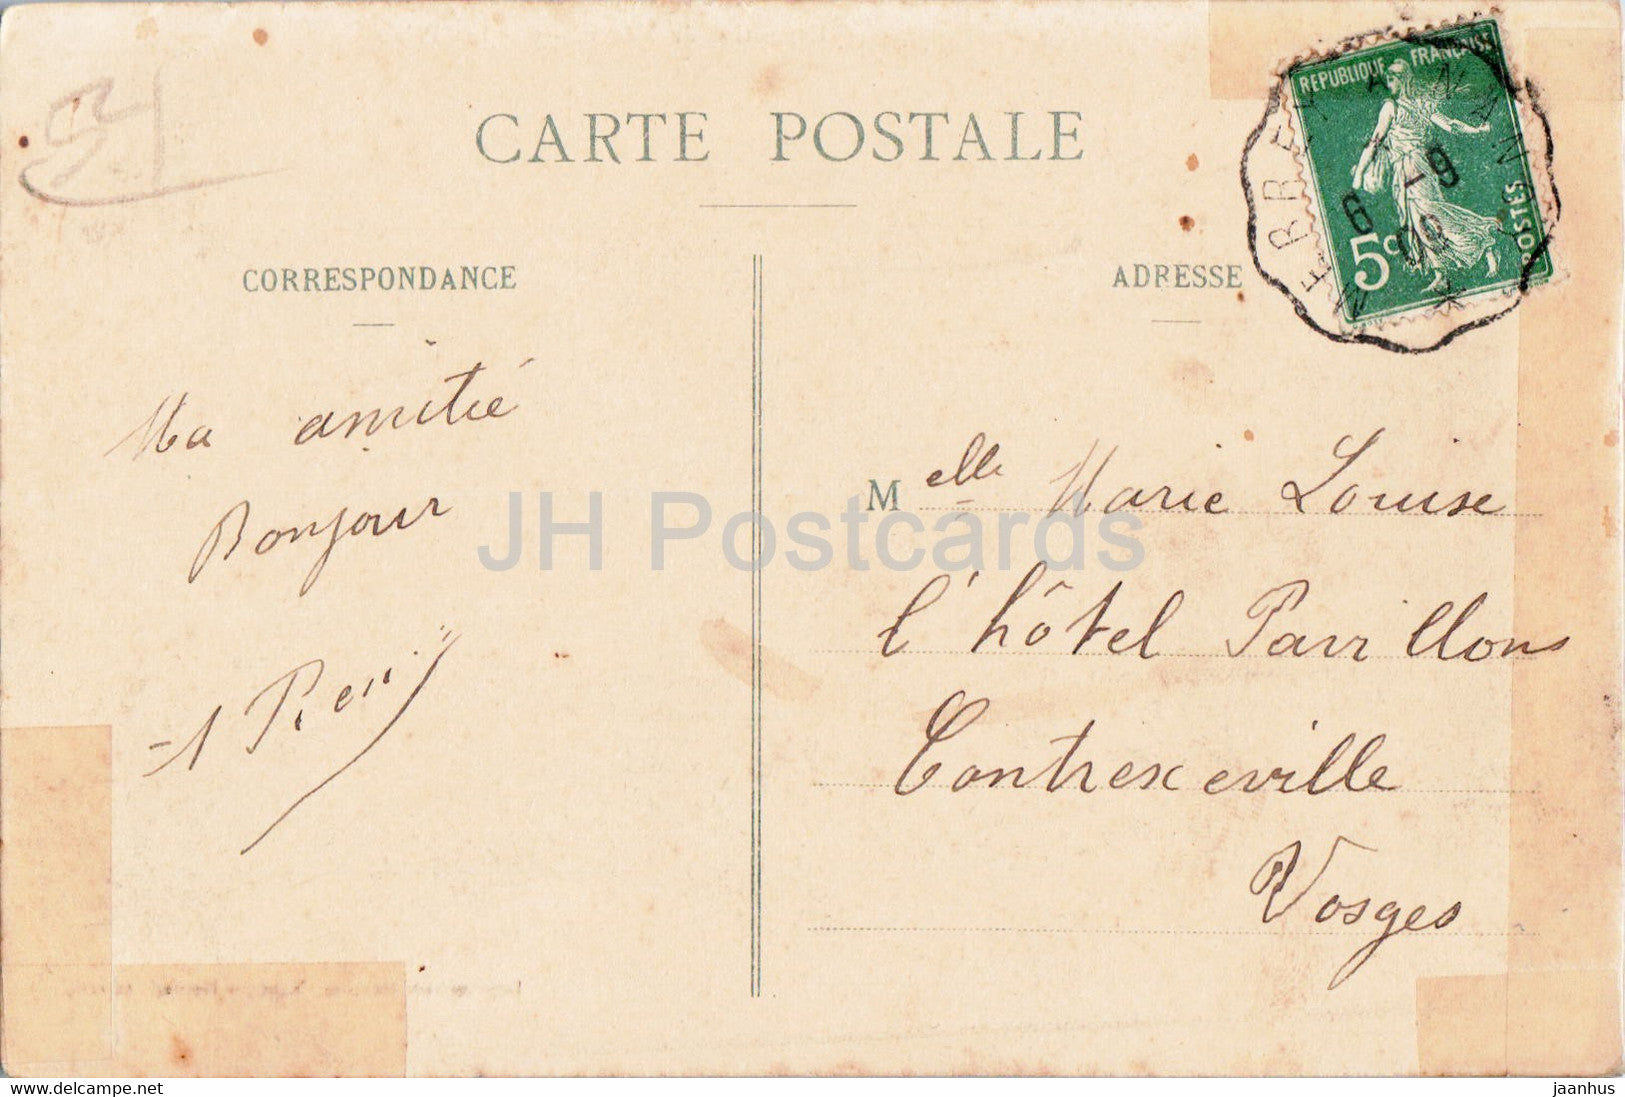 CARTE POSTALE
CORRESPONDANCE
ADRESSE
REPUBLIQUE FRANÇAISE
POSTES
5c
8 -9
09
Ma amitié
Bonjour
Melle Marie Louise
l'hôtel Pavillons
Contrexeville
Vosges
JH Postcards
www.delcampe.net
jaanhus